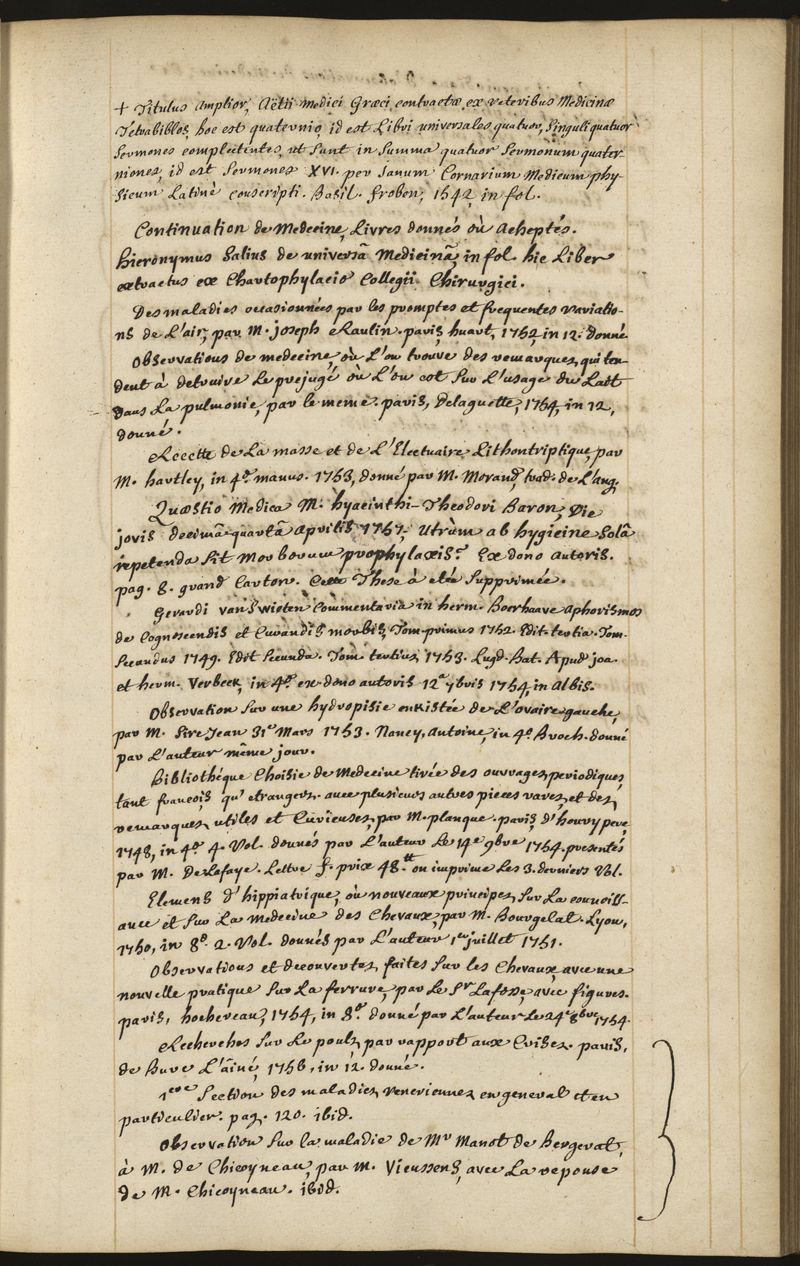 + Titulus Amplior, Aëtii Medici Græci contractæ ex veteribus Medicinæ
Tetrabiblos, hoc est quaternio, id est Libri universales quatuor, Singuli quatuor
Sermones complectentes, ut Sunt in Summa quatuor Sermonum quater-
niones, id est Sermones XVI. per Ianum Cornarium Medicum phy-
Sicum Latinè conscripti. Basil. froben, 1542, in fol.
Continuation de Medecine, Livres donnés où acheptés.
hieronymus Salius de universâ Medicinâ, in fol. hic Liber
extractus ex Chartophylacio Collegii Chirurgici.
Des maladies occasionnées par les promptes et frequentes variatio-
ns de L'air, par M. joseph Raulin. paris, huart, 1752, in 12. donné.
Observations de medecine, où L'on trouve des remarques, qui ten-
dent à detruire Le prejugé où L'on est Sur L'usage du Lait
dans La pulmonie, par le meme. paris, Delaguette, 1754, in 12,
donné.
Recette de La masse et de L'Electuaire Lithontriptique, par
M. hartley, in 4º. manus. 1753, donné par M. Morand, trad. de L'ang.
Quæstio Medica M. hyacinthi-Theodori Baron, Die
jovis decimâ quartâ aprilis 1757, Utrùm ab hygieine Solâ
repetenda Sit Morborum prophylaxis? Ex dono autoris.
pag. 8. grand Carton. Cette These à eté Supprimée.
Gerardi Van Swieten Commentaria in herm. Boerhaave aphorismos
de Cognoscendis et Curandis morbis, Tom. primus 1752. Edit. tertia. Tom.
Secundus 1749. Edit Secunda. Tom. tertius, 1753. Lugd. Bat. Apud joa.
et herm. Verbeek, in 4º. ex dono autoris 12ª 7bris 1754, in Albis.
Observation Sur une hydropisie enkistée de L'ovaire gauche,
par M. Sire Jean 31e Mars 1753. Nancy, Antoine, in 4º. Broch. donné
par L'auteur même jour.
Bibliothéque Choisie de Medecine tirée des ouvrages periodiques,
tant francois qu'etrangers. avec plusieurs autres pieces rares, et des
remarques utiles et Curieuses, par M. planque. paris, d'houry pere,
1748, in 4º. 4. Vol. donnés par L'auteur Le 14e 9bre 1754. presentés
par M. DeLafaye. Lettre f. prix 48.tt on imprime Les 3. derniers Vol.
Elemens d'hippiatrique, où nouveaux principes, Sur La connoiss-
ance et Sur La Medecine des Chevaux, par M. Bourgelat. Lyon,
1750, in 8º. 2. Vol. donnés par L'auteur 1er juillet 1751.
Observations et decouvertes, faites Sur les Chevaux, avec une
nouvelle pratique Sur La ferrure, par Le Sr Lafosse, avec figures.
paris, hochereau, 1754, in 8º. donné par L'auteur Le 24e 8bre 1754.
Recherches Sur Le pouls, par rapport aux Crises. paris,
de Bure L'âiné, 1756, in 12. donné.
1ere Section des maladies, Veneriennes, en general et en
particulier. pag. 120. ibid.
Observation Sur la maladie de Mr Manot de Bergerat,
à M. de Chicoyneau, par M. Vieussens, avec La reponse
de M. Chicoyneau. ibid.